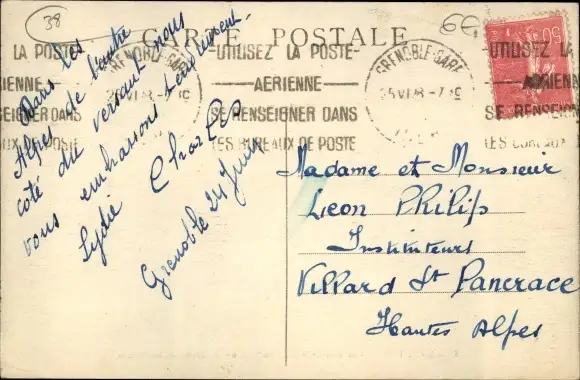 38
6E
CARTE POSTALE
LA POSTE
AERIENNE
SE RENSEIGNER DANS
LES BUREAUX DE POSTE
GRENOBLE-GARE
25 VI
UTILISEZ LA POSTE
AERIENNE
SE RENSEIGNER DANS
LES BUREAUX DE POSTE
GRENOBLE-GARE
25 VI 28 - 7
UTILISEZ LA
AERIEN
SE RENSEIGN
LES BUREAUX
50
Dans les
Alpes de l'autre
côté du versant nous
vous embrassons
Lydie Charles
Grenoble 24 Juin
Madame et Monsieur
Leon Philip
Instituteurs
Villard St Pancrace
Hautes Alpes